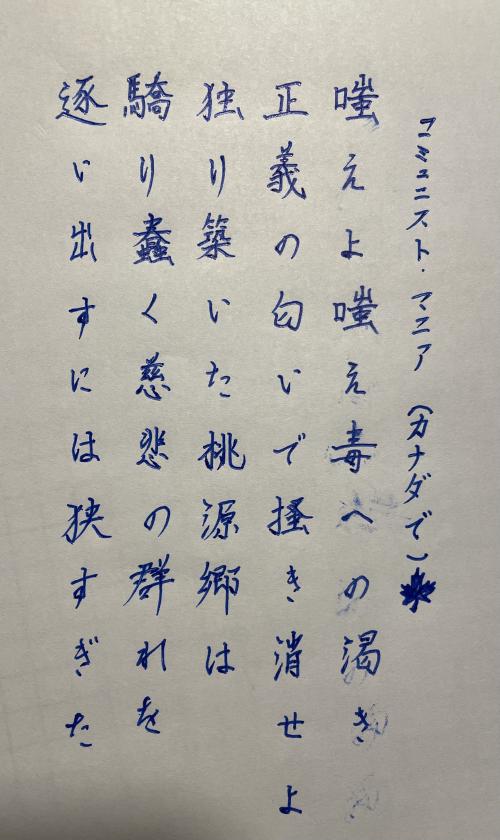 コミュニスト・マニア (カナダで)
嗤えよ嗤え毒への渇き
正義の匂いで掻き消せよ
独り築いた桃源郷は
驕り蠢く慈悲の群れを
逐い出すには狭すぎた